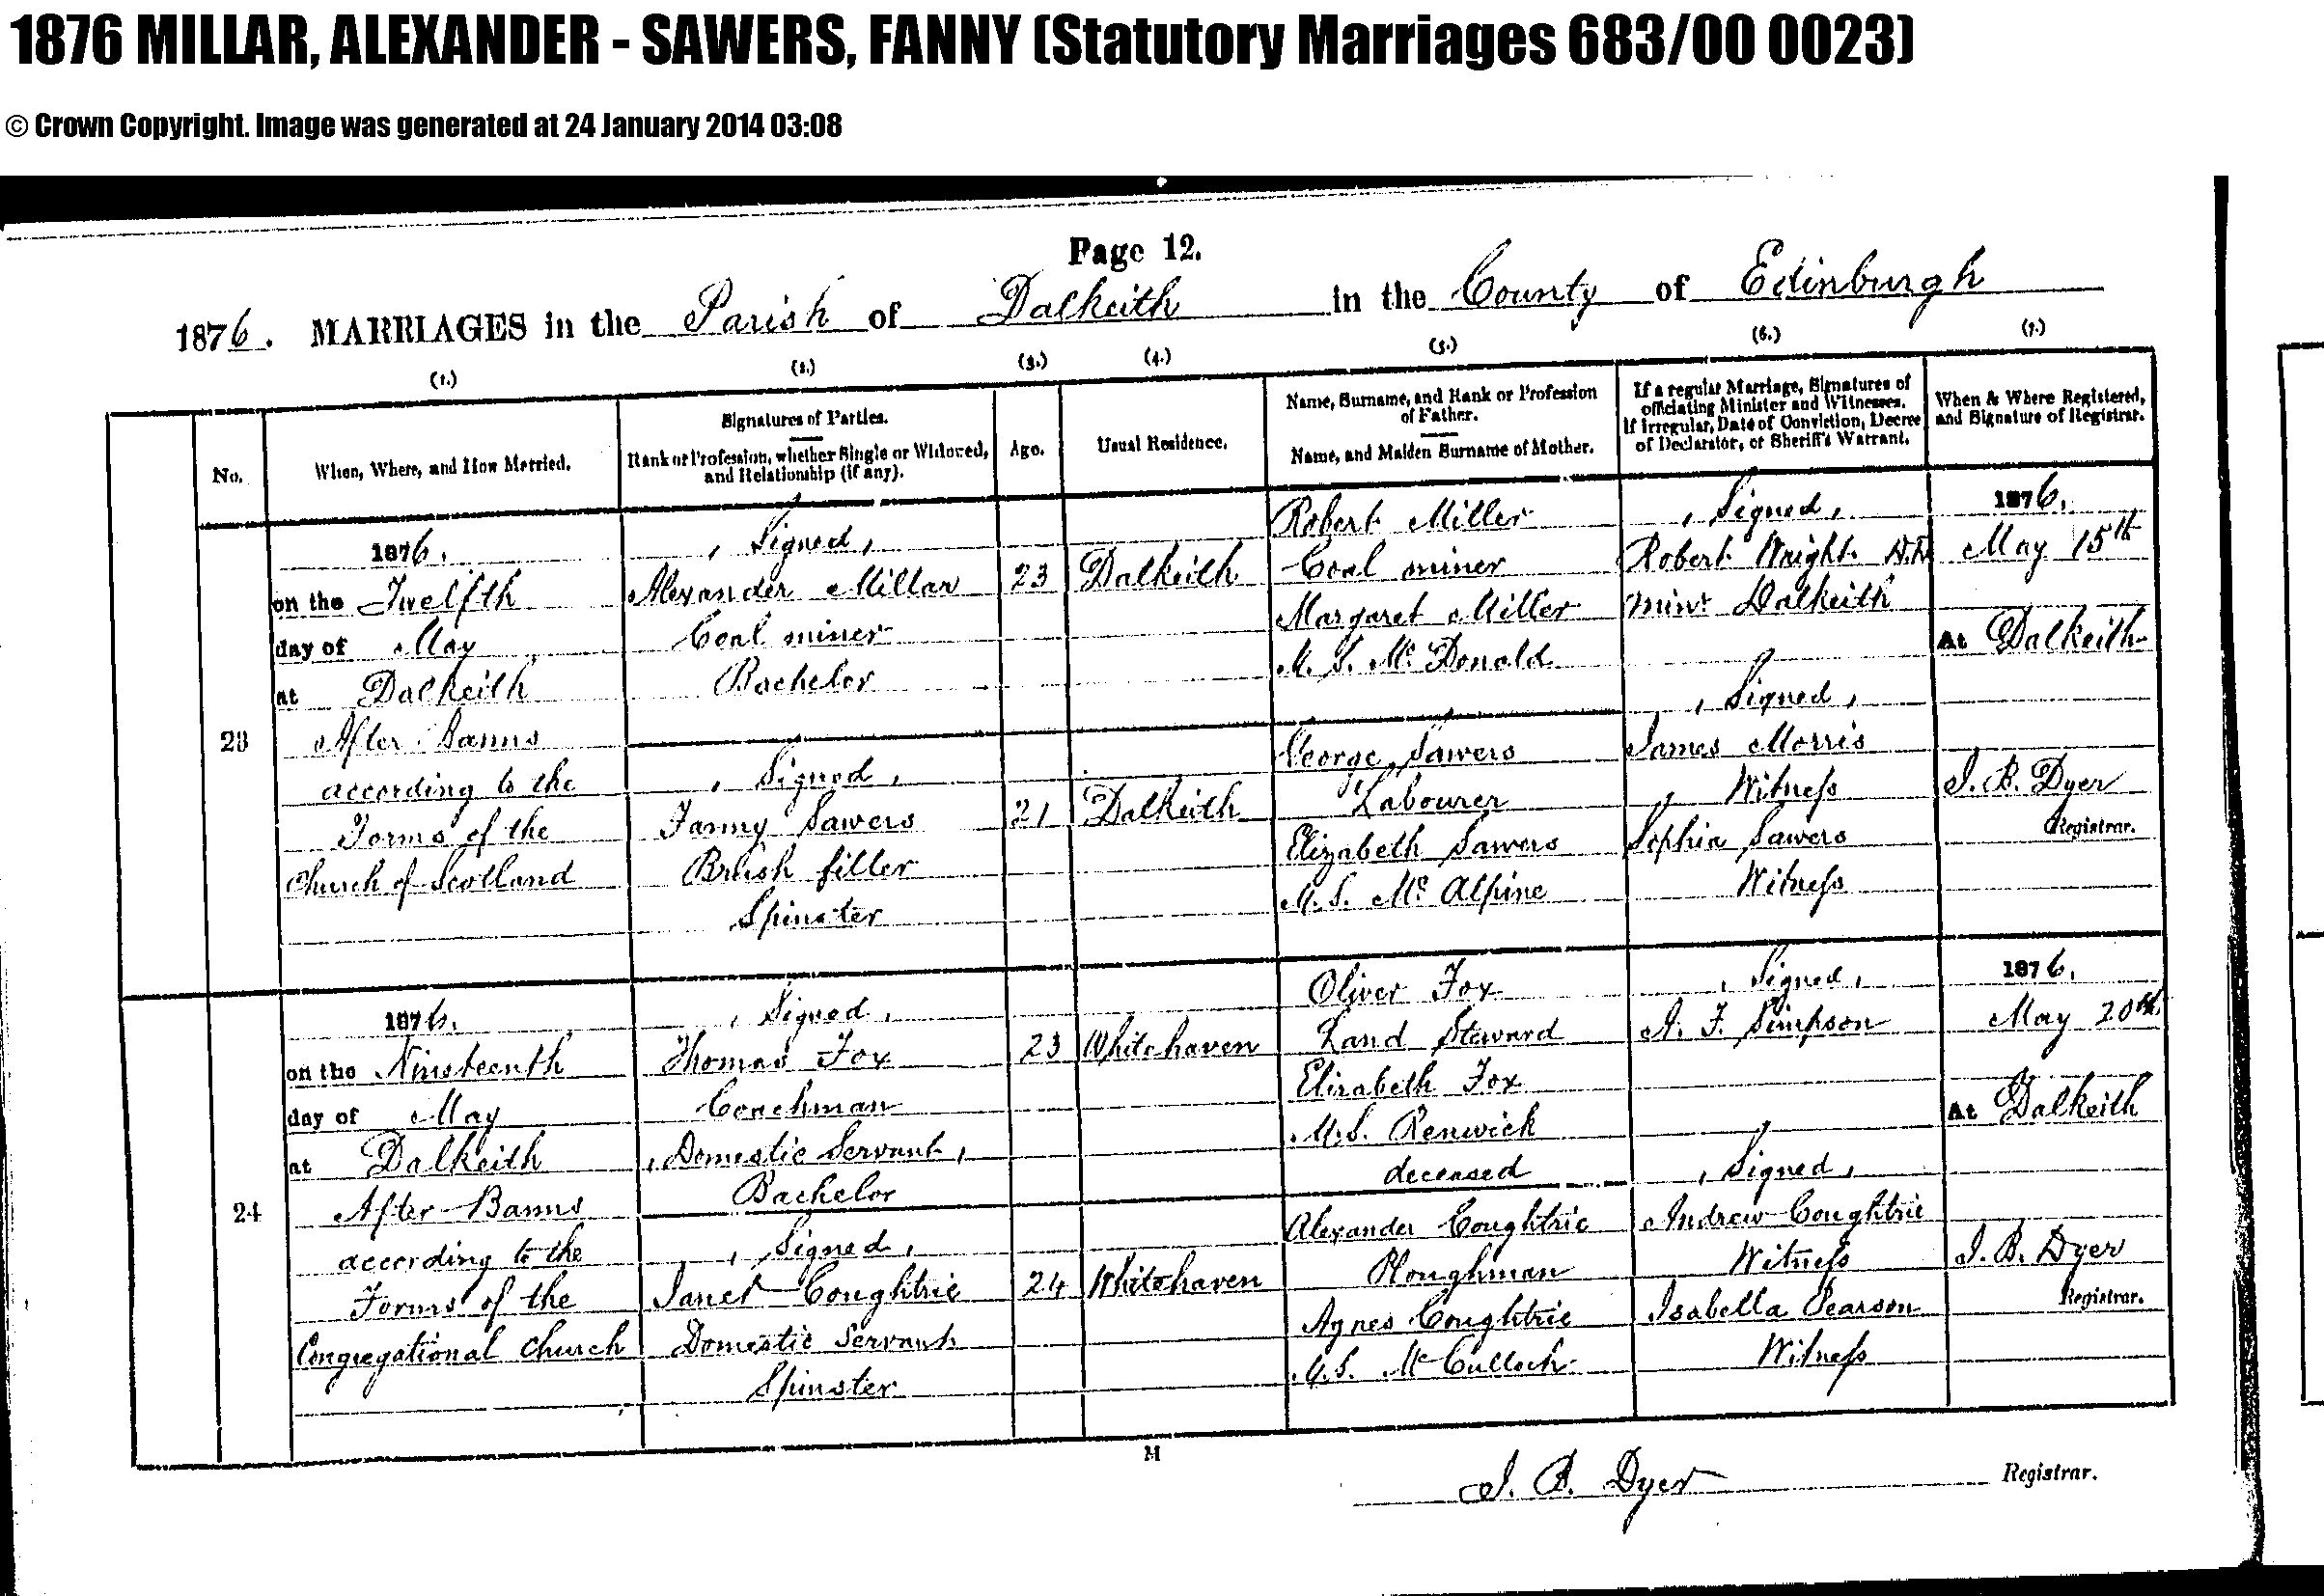 1876 MILLAR, ALEXANDER - SAWERS, FANNY (Statutory Marriages 683/00 0023)
© Crown Copyright. Image was generated at 24 January 2014 03:08
Page 12.
1876. MARRIAGES in the Parish of Dalkeith in the County of Edinburgh
(1.) (2.) (3.) (4.) (5.) (6.) (7.)
No.
When, Where, and How Married.
Signatures of Parties.
Rank or Profession, whether Single or Widowed,
and Relationship (if any).
Age.
Usual Residence.
Name, Surname, and Rank or Profession
of Father.
Name, and Maiden Surname of Mother.
If a regular Marriage, Signatures of
officiating Minister and Witnesses.
If irregular, Date of Conviction, Decree
of Declarator, or Sheriff's Warrant.
When & Where Registered,
and Signature of Registrar.
23
1876.
on the Twelfth
day of May
at Dalkeith
After Banns
according to the
Forms of the
Church of Scotland
(Signed)
Alexander Millar
Coal miner
Bachelor
(Signed)
Fanny Sawers
Brush filler
Spinster
23
21
Dalkeith
Dalkeith
Robert Miller
Coal miner
Margaret Miller
M.S. McDonald
George Sawers
Labourer
Elizabeth Sawers
M.S. McAlpine
(Signed)
Robert Wright D.D.
Minr Dalkeith
(Signed)
James Morris
Witness
Sophia Sawers
Witness
1876.
May 15th
At Dalkeith
J. B. Dyer
Registrar.
24
1876.
on the Nineteenth
day of May
at Dalkeith
After Banns
according to the
Forms of the
Congregational Church
(Signed)
Thomas Fox
Coachman
(Domestic Servant)
Bachelor
(Signed)
Janet Coughtrie
Domestic Servant
Spinster
23
24
Whitehaven
Whitehaven
Oliver Fox
Land Steward
Elizabeth Fox
M.S. Renwick
deceased
Alexander Coughtrie
Ploughman
Agnes Coughtrie
M.S. McCulloch
(Signed)
A. F. Simpson
(Signed)
Andrew Coughtrie
Witness
Isabella Pearson
Witness
1876.
May 20th
At Dalkeith
J. B. Dyer
Registrar.
M
J. B. Dyer Registrar.